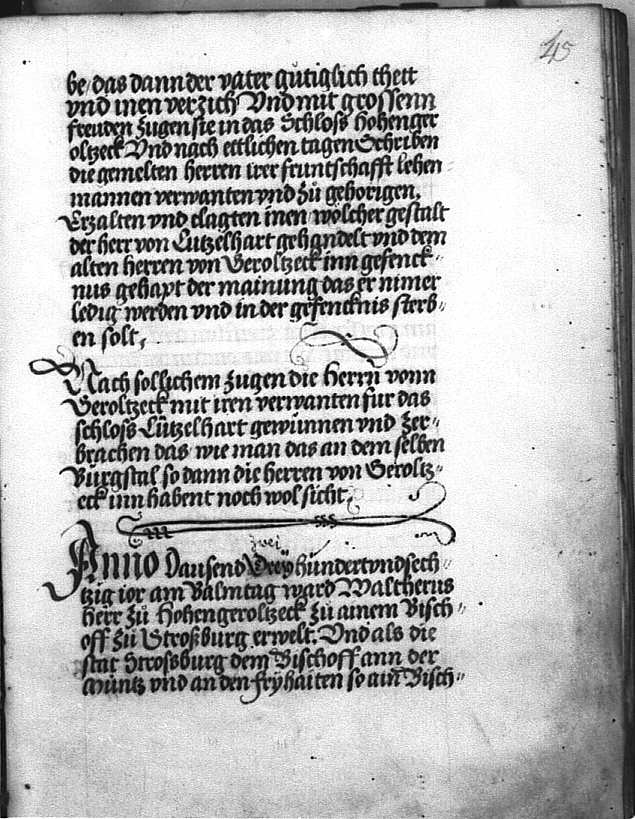 45
be / das dann der vater gůtiglich thett
vnd inen verzich Vnd mit grossenn
freuden zugen sie in das Schloss hohenger
oltzeck Vnd nach ettlichen tagen Schriben
die gemelten herren irer fruntschafft lehen
mannen verwanten vnd zů gehorigen.
Erzalten vnd clagten inen wölcher gestalt
der herr von Lutzelhart gehandelt vnd dem
alten herren von Geroltzeck inn gefenck-
nus gehapt der mainung das er nimer
ledig werden vnd in der gefencknis sterb-
en solt,
Nach sollichem zugen die herrn vonn
Geroltzeck mit iren verwanten fur das
schloss Lützelhart gewunnen vnd zer-
brachen das / wie man das an dem selben
Burgstal so dann die herren von Geroltz-
eck inn habent noch wol sicht,
zwei
Anno Dausend Drey hundert vnd sech-
tzig ior am Balmtag ward Waltherus
herr zů Hohengeroltzeck zů ainem Bisch-
off zů Stroßburg erwelt. Vnd als die
stat Strossburg dem Bischoff ann der
Müntz vnd an den fryhaiten so ain Bisch-